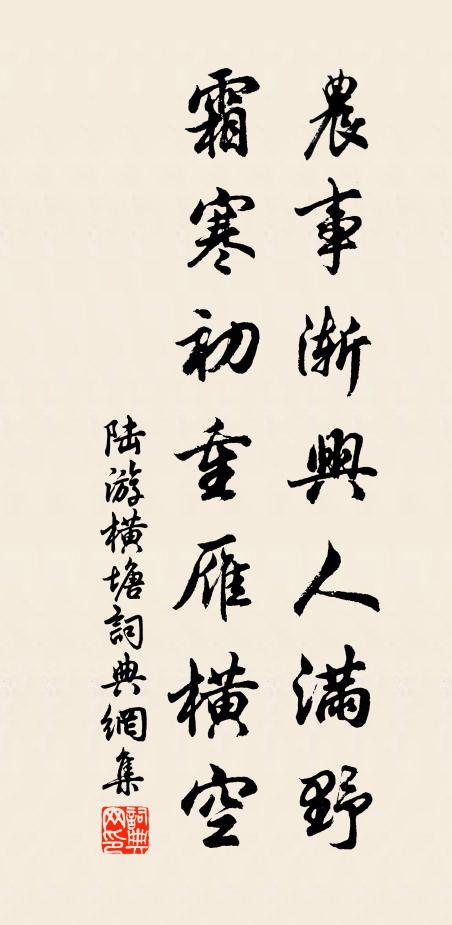 農事漸興人滿野
霜寒初重雁橫空
陸游橫塘詞典網集
詞典网印